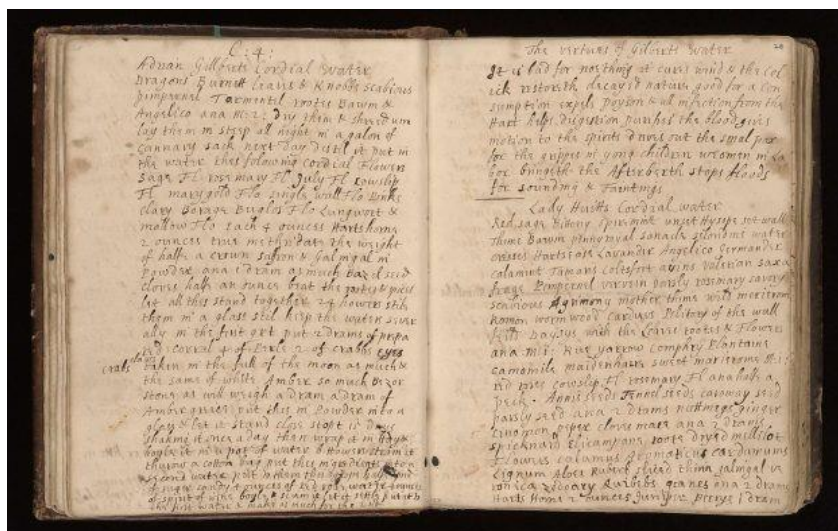 C: 4:
Adrian Gillberts Cordial Water
Dragons Burnett leaves & Knobbs Scabious
Pimpernel Tormentil rootes Bawm &
Angelico ana M: 2: dry them & shred um
lay them in steep all night in a galon of
Cannary sack next day distil it put in
the water thes folowing Cordial Flowers
Sage Fl rosemary Fl July Fl Cowslip
Fl marygold Flo single wall Flo Pinks
Clary Borage Buglos Flo Lungwort &
mallow Flo each 4 ounces Hartshorne
2 ounces true methridat the weight
of halfe a crown saffron & Galingal in
powder ana i dram as much Bazel seed
Cloves half an ounce beat the rootes & spices
let all thes stand together 24 howers still
them in a glass stil keep the water sever
ally in the first qrt put 2 drams of prepa
red Corral 4 of Perle 2 of crabbs eyes
crabs claws
taken in the full of the moon as much &
the same of white Amber so much Bezor
stone as will weigh a dram a dram of
Amber greece put thes in powder into a
glas & let it stand close stopt 12 days
shaking it once a day then wrap it in hay &
boyle it in a pot of water 6 Howers strain it
throw a cotton bag put thes ingredients into a
second water
of suger candy 4 ounces of red rose water 4 ounces
of spirit of wine boyle & scum it let it settle put it to
the first water & make as much for the
20
The vertues of Gilberts Water
It is bad for nothing it cures wind & the Col
ick restoreth decayed nature good for a Con
sumption expels Poyson & all infection from the
Hart helps digestion purifies the blood gives
motion to the spirits drives out the smal pox
for the gripes in yong children weomen in La
bor bringeth the Afterberth stops floods
for sounding & Faintings
Lady Cordial water
Red sage Bittony Spiremint unset Hysope set wall
Thime Bawm pennyroyal sanacle selondine water
cresses Hartsease Lavander Angelico Germander
calamint Tamaris Coltsfort avins valerian saxa
frage Pimpernel vervein parsly rosemary savory
scabious Agrimony mother thime wild marierom
Roman wormwood Carduus Pelitory of the wall
Feild Daysys with the Leaves rootes & Flowers
ana M: i: Rue yarrow Comphry Plantaine
Camomile maidenhaire sweet marierome M: i:
red roses Cowslip Fl rosemary Fl ana halfe a
peck. Annis seeds Fennel seeds Caroway seed
parsly seed ana 2 drams nuttmegs ginger
Cinomon peper cloves mace ana 2 drams
spicknard Elicampane roote dryed mellilot
Flowers calamus Aromaticus Cardamums
Lignum Aloes Rubarb sliced thinn galingal ve
ronica zedoary Qubebs graines ana 2 drams
Harts Horne 2 ounces Juniper berrys i dram